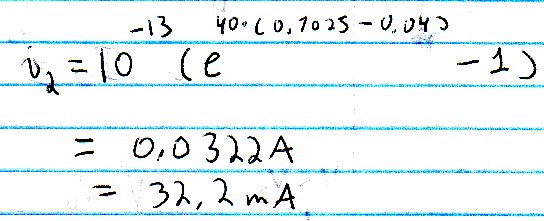 i₂ = 10⁻¹³ (e^40·(0,7025 - 0,04) - 1)
= 0,0322A
= 32,2 mA